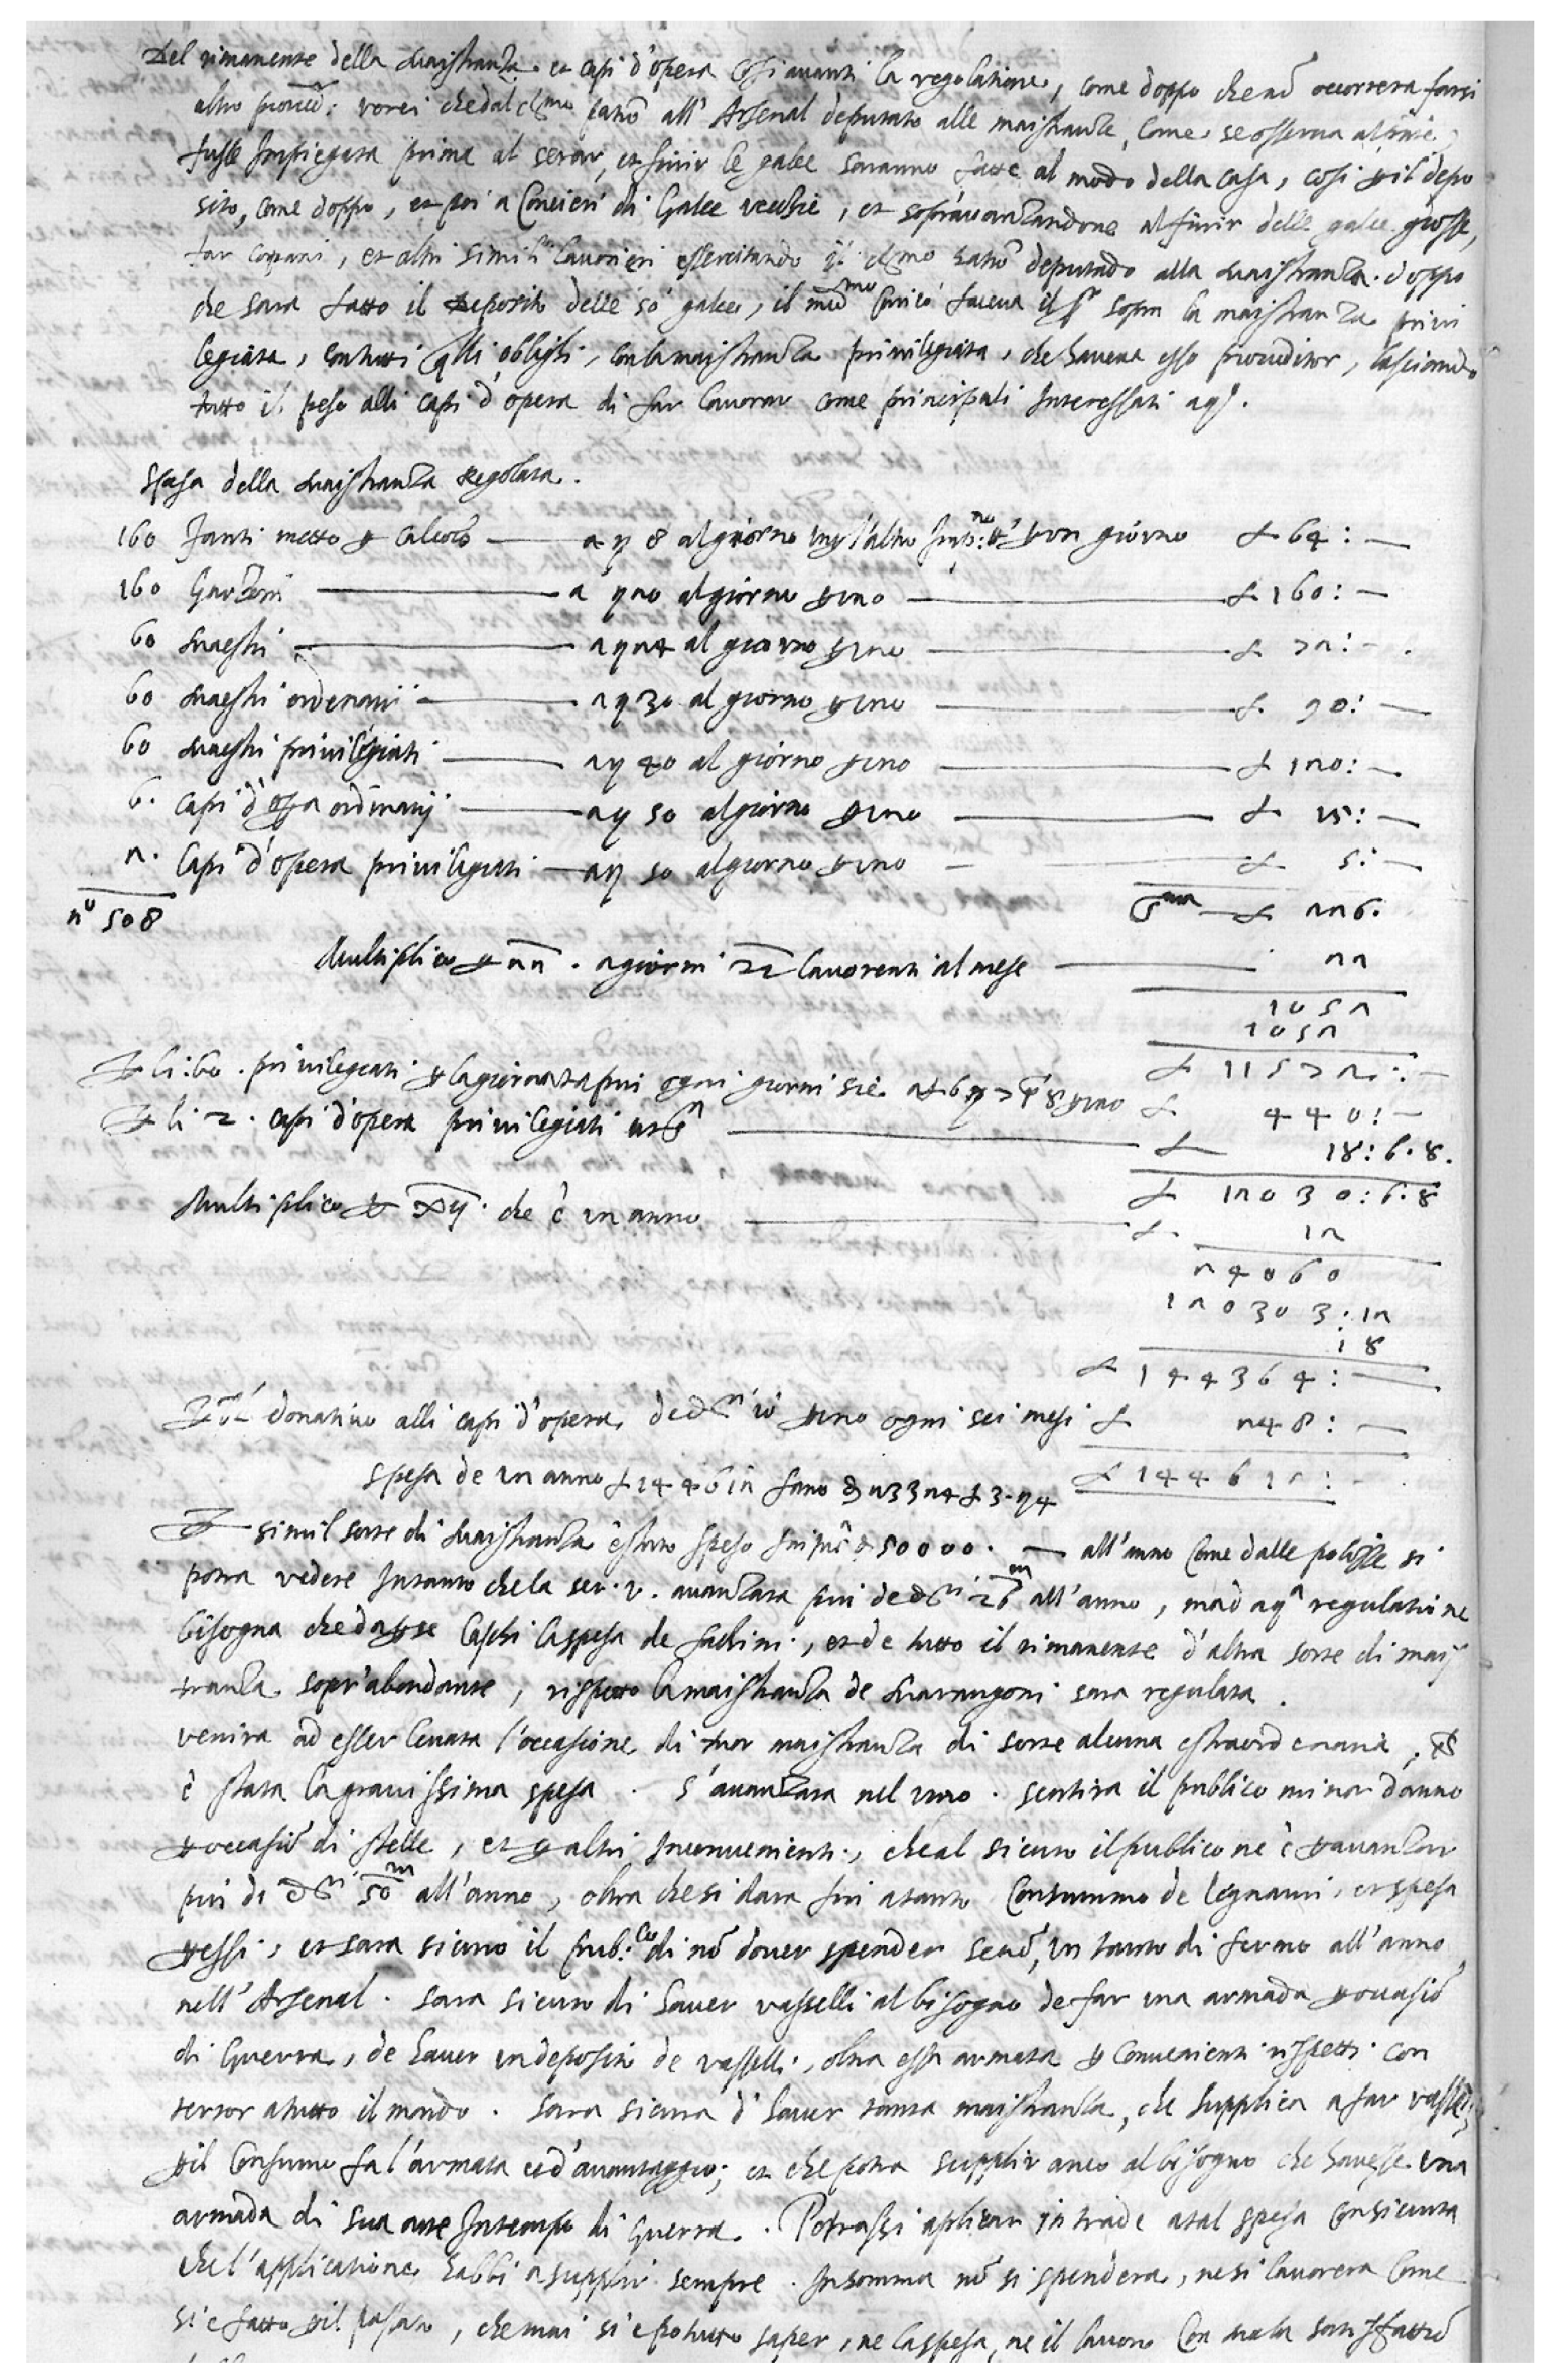 Del rimanente della Maistranza et capi d'opera Cosi avanti la regolatione, come doppo che nõ occorrera farsi
altro vorei che dal Cl.mo patrõ all' Arsenal deputato alle maistranze, Come se osserva al
fusse Impiegata prima al serar, et finir le galee saranno fatte al modo della casa, cosi p il depo
sito, come doppo, et poi a Concieri di Galee vecchie, et sopravanzandone al finir delle galee grosse,
far copani, et altri simili lavorieri essercitando il cl.mo patrõ deputado alla Maistranza doppo
che sara fatto il deposito delle 50 galee, il med.mo Carico faceva il sopra la maistranza privi
legiata, con tutti qlli oblighi, con la maistranza privilegiata, che haveva esso proveditor, lasciando
tutto il peso alli capi d'opera di far lavorar come principali Interessati
Spesa della Maistranza Regolata.
160 Fanti metto p Calcolo — a ß 8 al giorno un l'altro p un giorno £ 64: —
160 Garzoni — a ß 20 al giorno p uno — £ 160: —
60 Maestri — a ß 24 al giorno p uno — £ 72: —
60 Maestri ordenarii — a ß 30 al giorno p uno — £ 90: —
60 Maestri privilegiati — a ß 40 al giorno p uno — £ 120: —
6. Capi d'opa ordinarij — a ß 50 al giorno p uno — £ 15: —
2. Capi d'opera privilegiati — a ß 50 al giorno p uno — £ 5: —
nº 508 S.ma — £ 526.
Multiplico p 22. a giorni 22 lavorenti al mese — 22
1052
1052
£ 11572: —
P li 60. privilegiati p la giornata piu ogni giorni sie a £ 6 ß 7 p 8 p uno £ 440: —
P li 2. capi d'opera privilegiati — £ 18: 6. 8.
£ 12030: 6. 8
Multiplico p xij. che è un anno — £ 12
24060
12030 3: 12
: 8
£ 144364: —
P il donativo alli capi d'opera de d.ti 10 p uno ogni sei mesi £ 248: —
spesa de un anno £ 144612 sano d. 23324 £ 3. ß 4 £ 144612: —
P simil sorte di Maistranza è stato speso d. 50000. — all'anno Come dalle polizze si
potra vedere Intanto che la ser. v. avanzara piu de d.ti 26 m all'anno, regulatione
bisogna che da p se Caschi la spesa de fachini, et de tutto il rimanente d'altra sorte di mais
tranza sopr'abondante, rispetto la maistranza de Marangoni sara regulata.
venira ad esser levata l'occasione di tuor maistranza di sorte alcuna estraordenaria,
è stata la gravissima spesa. S'avanzara nel vino. sentira il publico minor danno
p occasiõ di stelle, et p altri Inconvenienti, che al sicuro il publico ne è p avanzar
piu di d.ti 50 m all'anno, oltra che si dara fin a tanto Consummo de legnami, et spesa
p essi, et sara sicuro il pub.co di nõ dover spender senõ un tanto di fermo all'anno
nell' Arsenal. sara sicuro di haver vasselli al bisogno de far una armada p occasiõ
di Guerra, de haver un deposito de vasselli, oltra essa armata p Convenienti rispetti con
terror a tutto il mondo. Sara sicura d'haver tanta maistranza, che supplica a far vasselli,
p il Consumo fa l'armata et d'avantaggio; et che potra supplir anco al bisogno che havesse una
armada di sua arte In tempo di Guerra. Potrassi aplicar intrade a tal spesa
che l'applicatione habbi a supplir sempre. In somma nõ si spendera, ne si lavorera Come
si è fatto p il passato, che mai si è potutto saper, ne la spesa, ne il lavoro Con mala